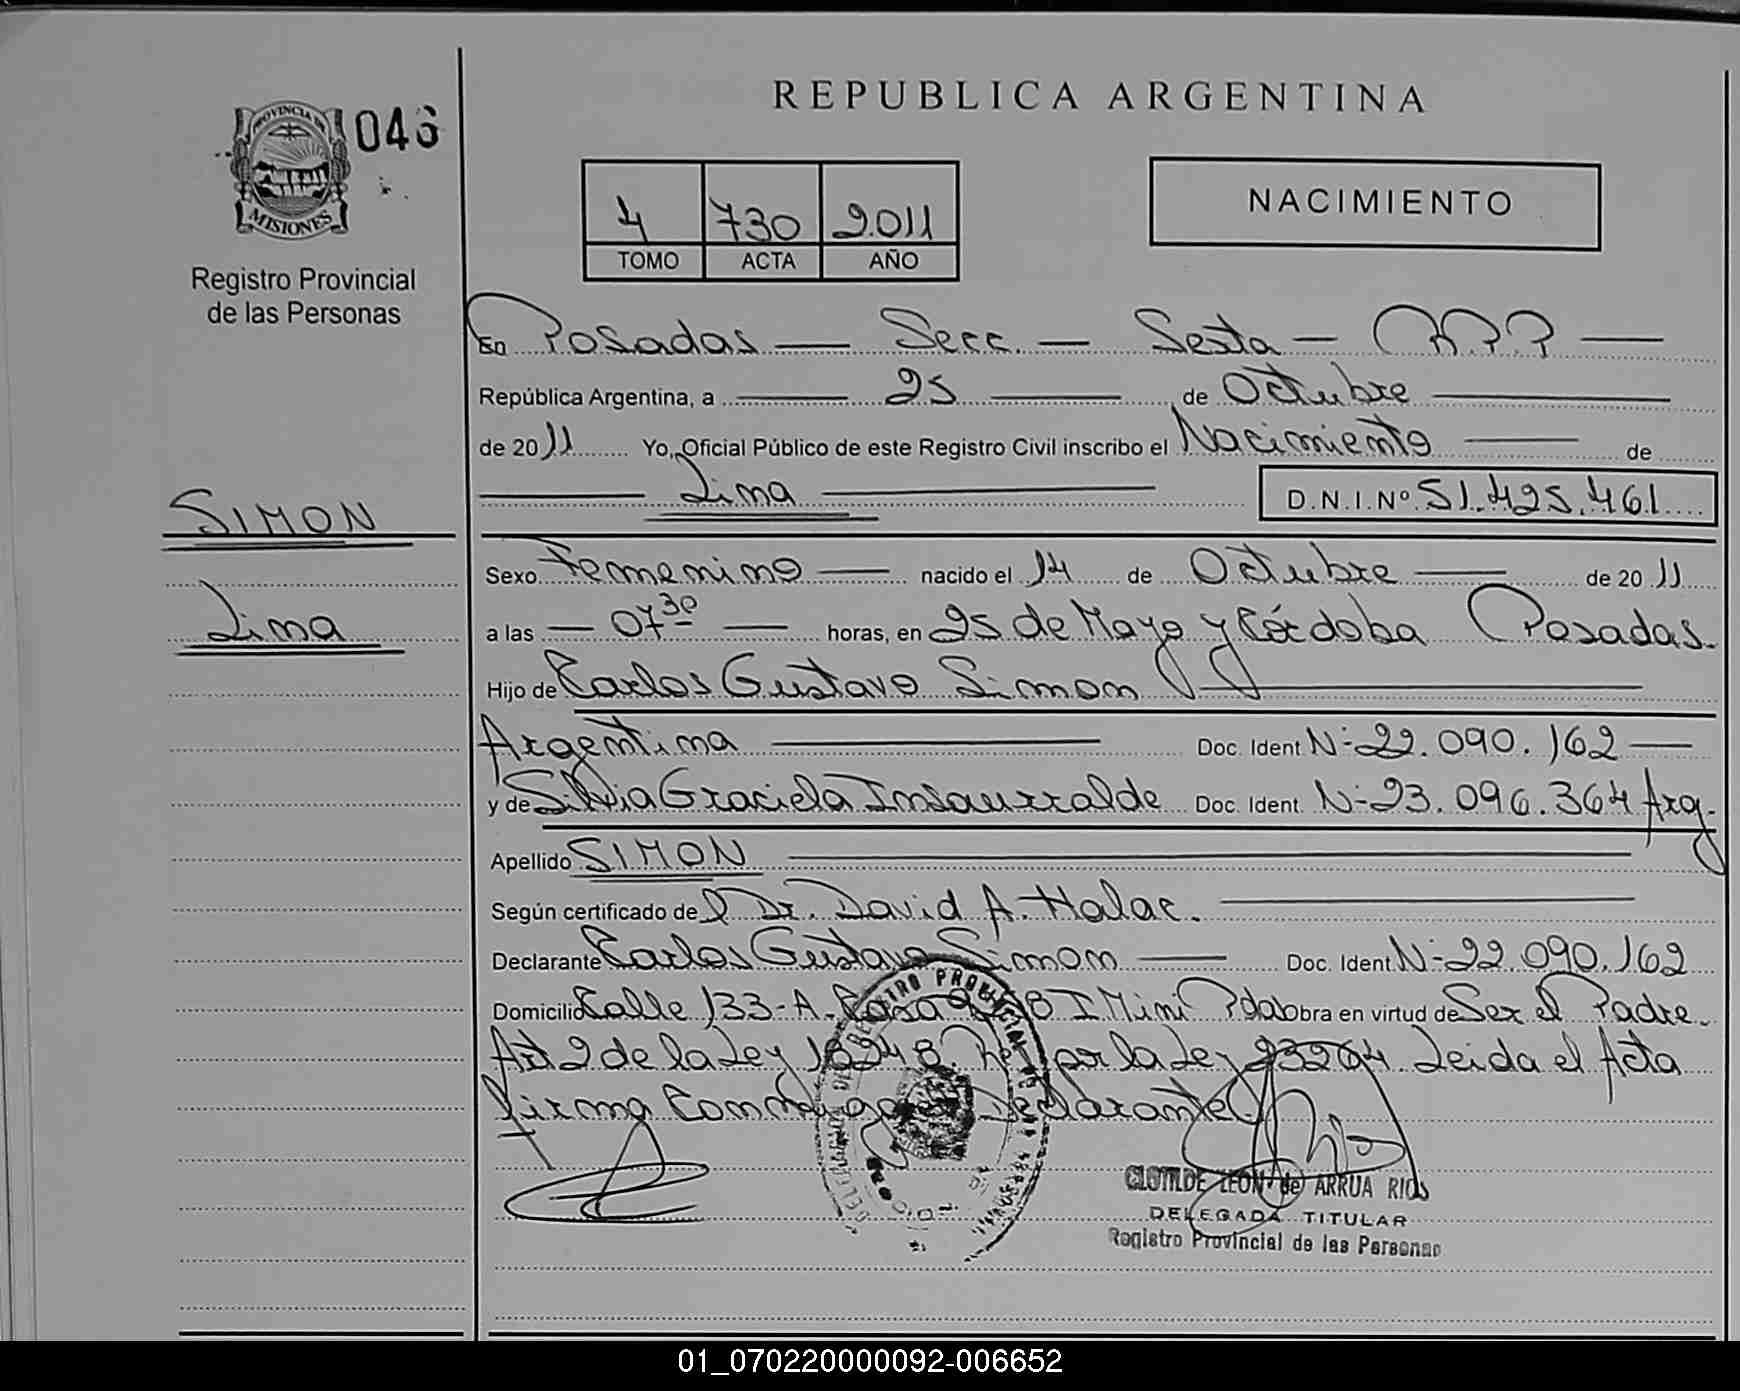 REPUBLICA ARGENTINA
PROVINCIA DE
MISIONES
046
Registro Provincial
de las Personas
NACIMIENTO
4 730 2.011
TOMO ACTA AÑO
En Posadas — Secc. — Sexta — R.P.P —
República Argentina, a — 25 — de Octubre —
de 2011 Yo, Oficial Público de este Registro Civil inscribo el Nacimiento — de
— Lima —
D.N.I.Nº 51.425.461
SIMON
Lima
Sexo Femenino — nacido el 14 de Octubre — de 2011
a las — 07³⁰ — horas, en 25 de Mayo y Córdoba Posadas.
Hijo de Carlos Gustavo Simon —
Argentina — Doc. Ident. N:22.090.162 —
y de Silvia Graciela Insaurralde Doc. Ident. N:23.096.364 Arg.
Apellido SIMON —
Según certificado del Dr. David A. Halac. —
Declarante Carlos Gustavo Simon — Doc. Ident. N:22.090.162
Domicilio Calle 133-A. Casa I Mini Pdas obra en virtud de Ser el Padre.
Art 2 de la Ley 18248. por la Ley 23264. Leida el Acta
firma Conmigo el Declarante
REGISTRO PROVINCIAL DE LAS PERSONAS
CLOTILDE LEON de ARRUA RIOS
DELEGADA TITULAR
Registro Provincial de las Personas
01_070220000092-006652